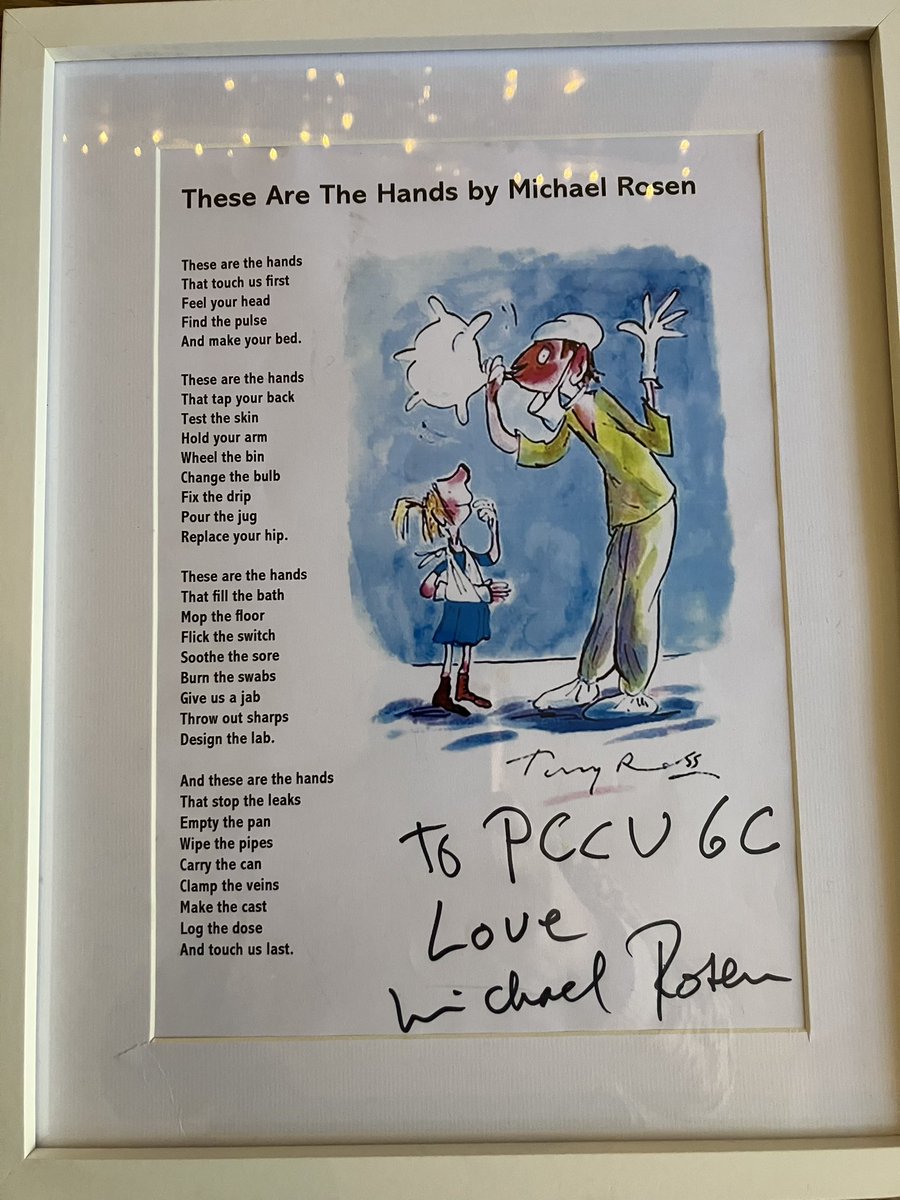 These Are The Hands by Michael Rosen
These are the hands
That touch us first
Feel your head
Find the pulse
And make your bed.
These are the hands
That tap your back
Test the skin
Hold your arm
Wheel the bin
Change the bulb
Fix the drip
Pour the jug
Replace your hip.
These are the hands
That fill the bath
Mop the floor
Flick the switch
Soothe the sore
Burn the swabs
Give us a jab
Throw out sharps
Design the lab.
And these are the hands
That stop the leaks
Empty the pan
Wipe the pipes
Carry the can
Clamp the veins
Make the cast
Log the dose
And touch us last.
Tony Ross
To PCCU 6C
Love
Michael Rosen